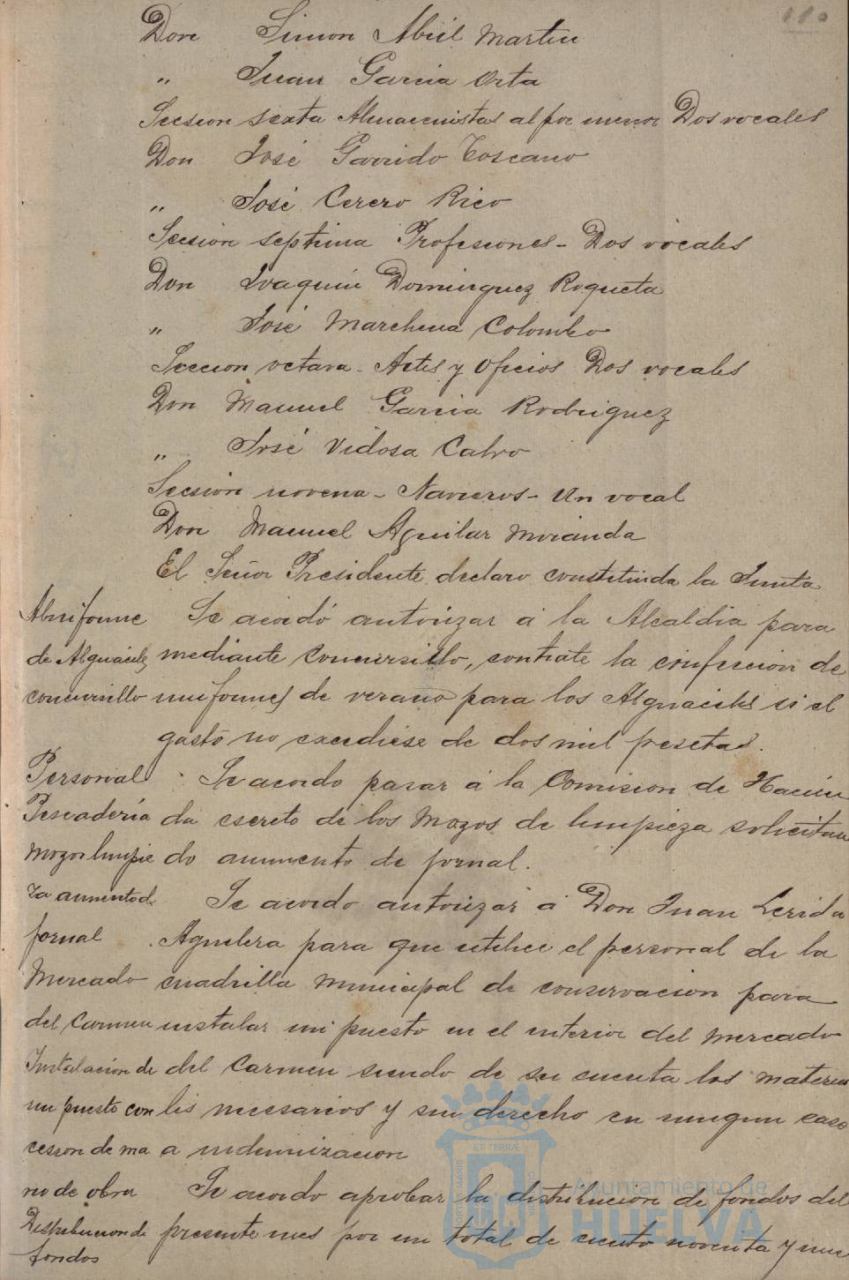 110
Don Simon Abril Martin
" Juan Garcia Orta
Seccion sexta Almacenistas al por menor Dos vocales
Don José Garrido Toscano
" José Cerero Rico
Seccion septima Profesiones - Dos vocales
Don Joaquin Dominguez Roqueta
" José Marchena Colombo
Seccion octava - Artes y Oficios Dos vocales
Don Manuel Garcia Rodriguez
" José Vidosa Calvo
Secsion novena - Navieros - Un vocal
Don Manuel Aguilar
El Señor Presidente declaro constituida la Junta
Se acordó autorizar á la Alcaldia para
mediante concursillo, contrate la confeccion de
uniformes de verano para los Alguaciles si el
gasto no excediese de dos mil pesetas.
Se acordo pasar á la Comision de Hacien
da escrito de los Mozos de limpieza solicitan
do aumento de jornal.
Se acordo autorizar á Don Juan Lerida
Aguilera para que utilice el personal de la
cuadrilla municipal de conservacion para
instalar un puesto en el interior del Mercado
del Carmen siendo de su cuenta los materia
les necesarios y sin derecho en ningun caso
a indemnizacion
Se acordo aprobar la distribucion de fondos del
presente mes por un total de ciento noventa y nue
uniforme
de Alguaciles
concursillo
Personal
Pescadería
Mozos limpie
za aumento d.
jornal
Mercado
del Carmen
Instalacion de
un puesto con
cesion de ma
no de obra
Distribucion de
fondos
Ayuntamiento de
HUELVA